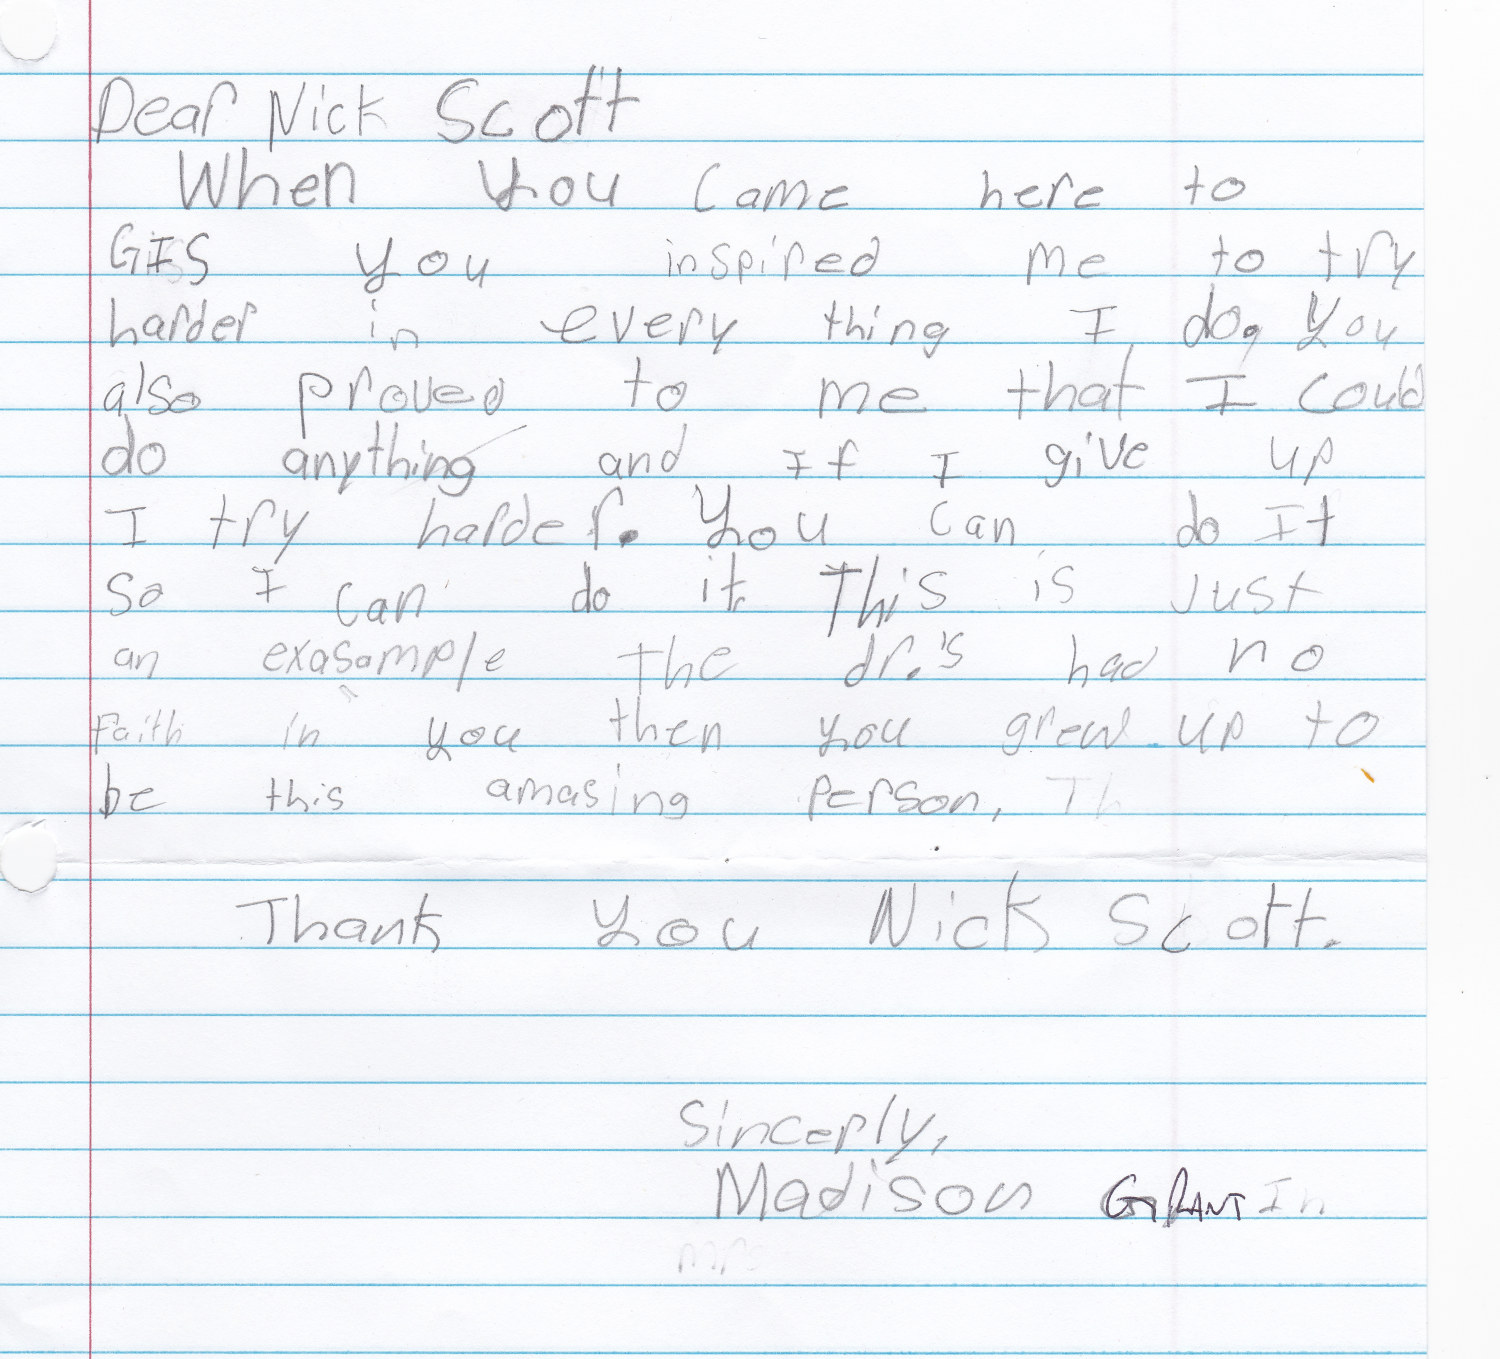 Dear Nick Scott
When you came here to
GIS you inspired me to try
harder in every thing I do. You
also proved to me that I could
do anything and If I give up
I try harder. You can do It
so I can do it. This is Just
an exasample the dr.'s had no
Faith in you then you grew up to
be this amasing person, Th
Thank you Nick Scott.
Sincerly,
Madison GRANT In
mrs